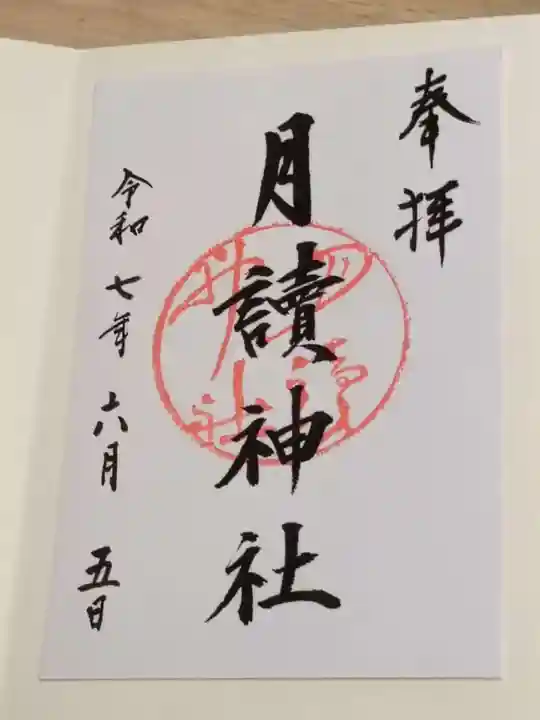 奉拝
月讀神社
令和七年六月五日